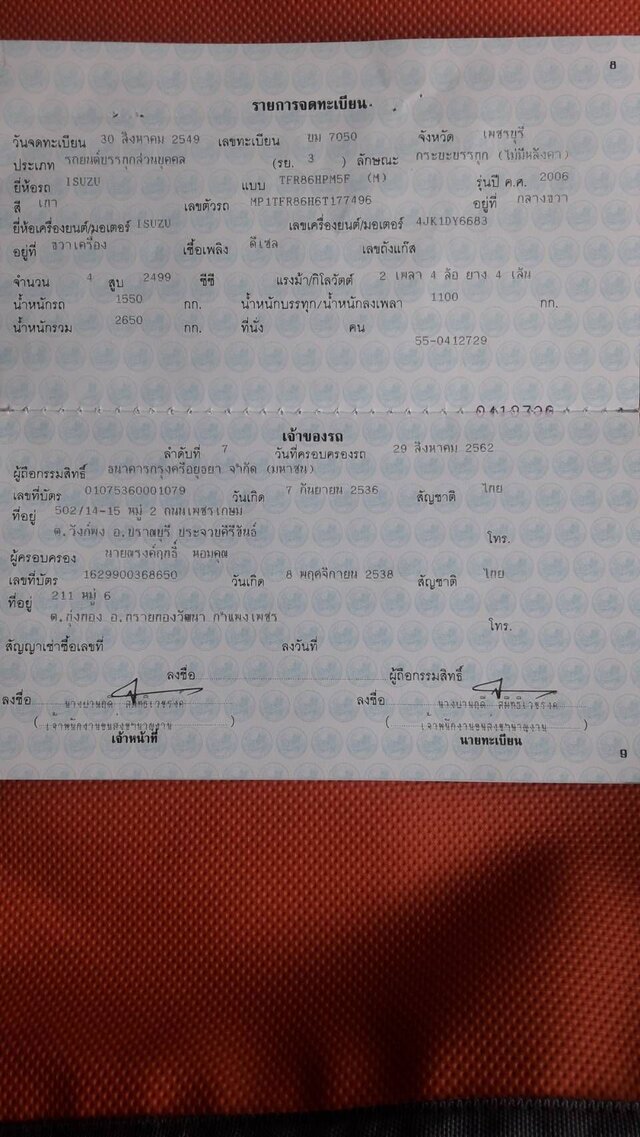 8
รายการจดทะเบียน
วันจดทะเบียน 30 สิงหาคม 2549 เลขทะเบียน บม 7050 จังหวัด เพชรบุรี
ประเภท รถยนต์บรรทุกส่วนบุคคล (รย. 3 ) ลักษณะ กระบะบรรทุก (ไม่มีหลังคา)
ยี่ห้อรถ ISUZU แบบ TFR86HPM5F (M) รุ่นปี ค.ศ. 2006
สี เทา เลขตัวรถ MP1TFR86H6T177496 อยู่ที่ กลางขวา
ยี่ห้อเครื่องยนต์/มอเตอร์ ISUZU เลขเครื่องยนต์/มอเตอร์ 4JK1DY6683
อยู่ที่ ขวาเครื่อง เชื้อเพลิง ดีเซล เลขถังแก๊ส
จำนวน 4 สูบ 2499 ซีซี แรงม้า/กิโลวัตต์ 2 เพลา 4 ล้อ ยาง 4 เส้น
น้ำหนักรถ 1550 กก. น้ำหนักบรรทุก/น้ำหนักลงเพลา 1100 กก.
น้ำหนักรวม 2650 กก. ที่นั่ง คน
55-0412729
เจ้าของรถ
ลำดับที่ 7 วันที่ครอบครองรถ 29 สิงหาคม 2562
ผู้ถือกรรมสิทธิ์ ธนาคารกรุงศรีอยุธยา จำกัด (มหาชน)
เลขที่บัตร 01075360001079 วันเกิด 7 กันยายน 2536 สัญชาติ ไทย
ที่อยู่ 502/14-15 หมู่ 2 ถนนเพชรเกษม
ต.วังก์พง อ.ปราณบุรี ประจวบคีรีขันธ์ โทร.
ผู้ครอบครอง นายณรงค์ฤทธิ์ หอมคุณ
เลขที่บัตร 1629900368650 วันเกิด 8 พฤศจิกายน 2538 สัญชาติ ไทย
ที่อยู่ 211 หมู่ 6
ต.ทุ่งทอง อ.ทรายทองวัฒนา กำแพงเพชร โทร.
สัญญาเช่าซื้อเลขที่ ลงวันที่
ลงชื่อ ผู้ถือกรรมสิทธิ์
ลงชื่อ ลงชื่อ
( เจ้าพนักงานขนส่งชำนาญงาน ) ( เจ้าพนักงานขนส่งชำนาญงาน )
เจ้าหน้าที่ นายทะเบียน
9